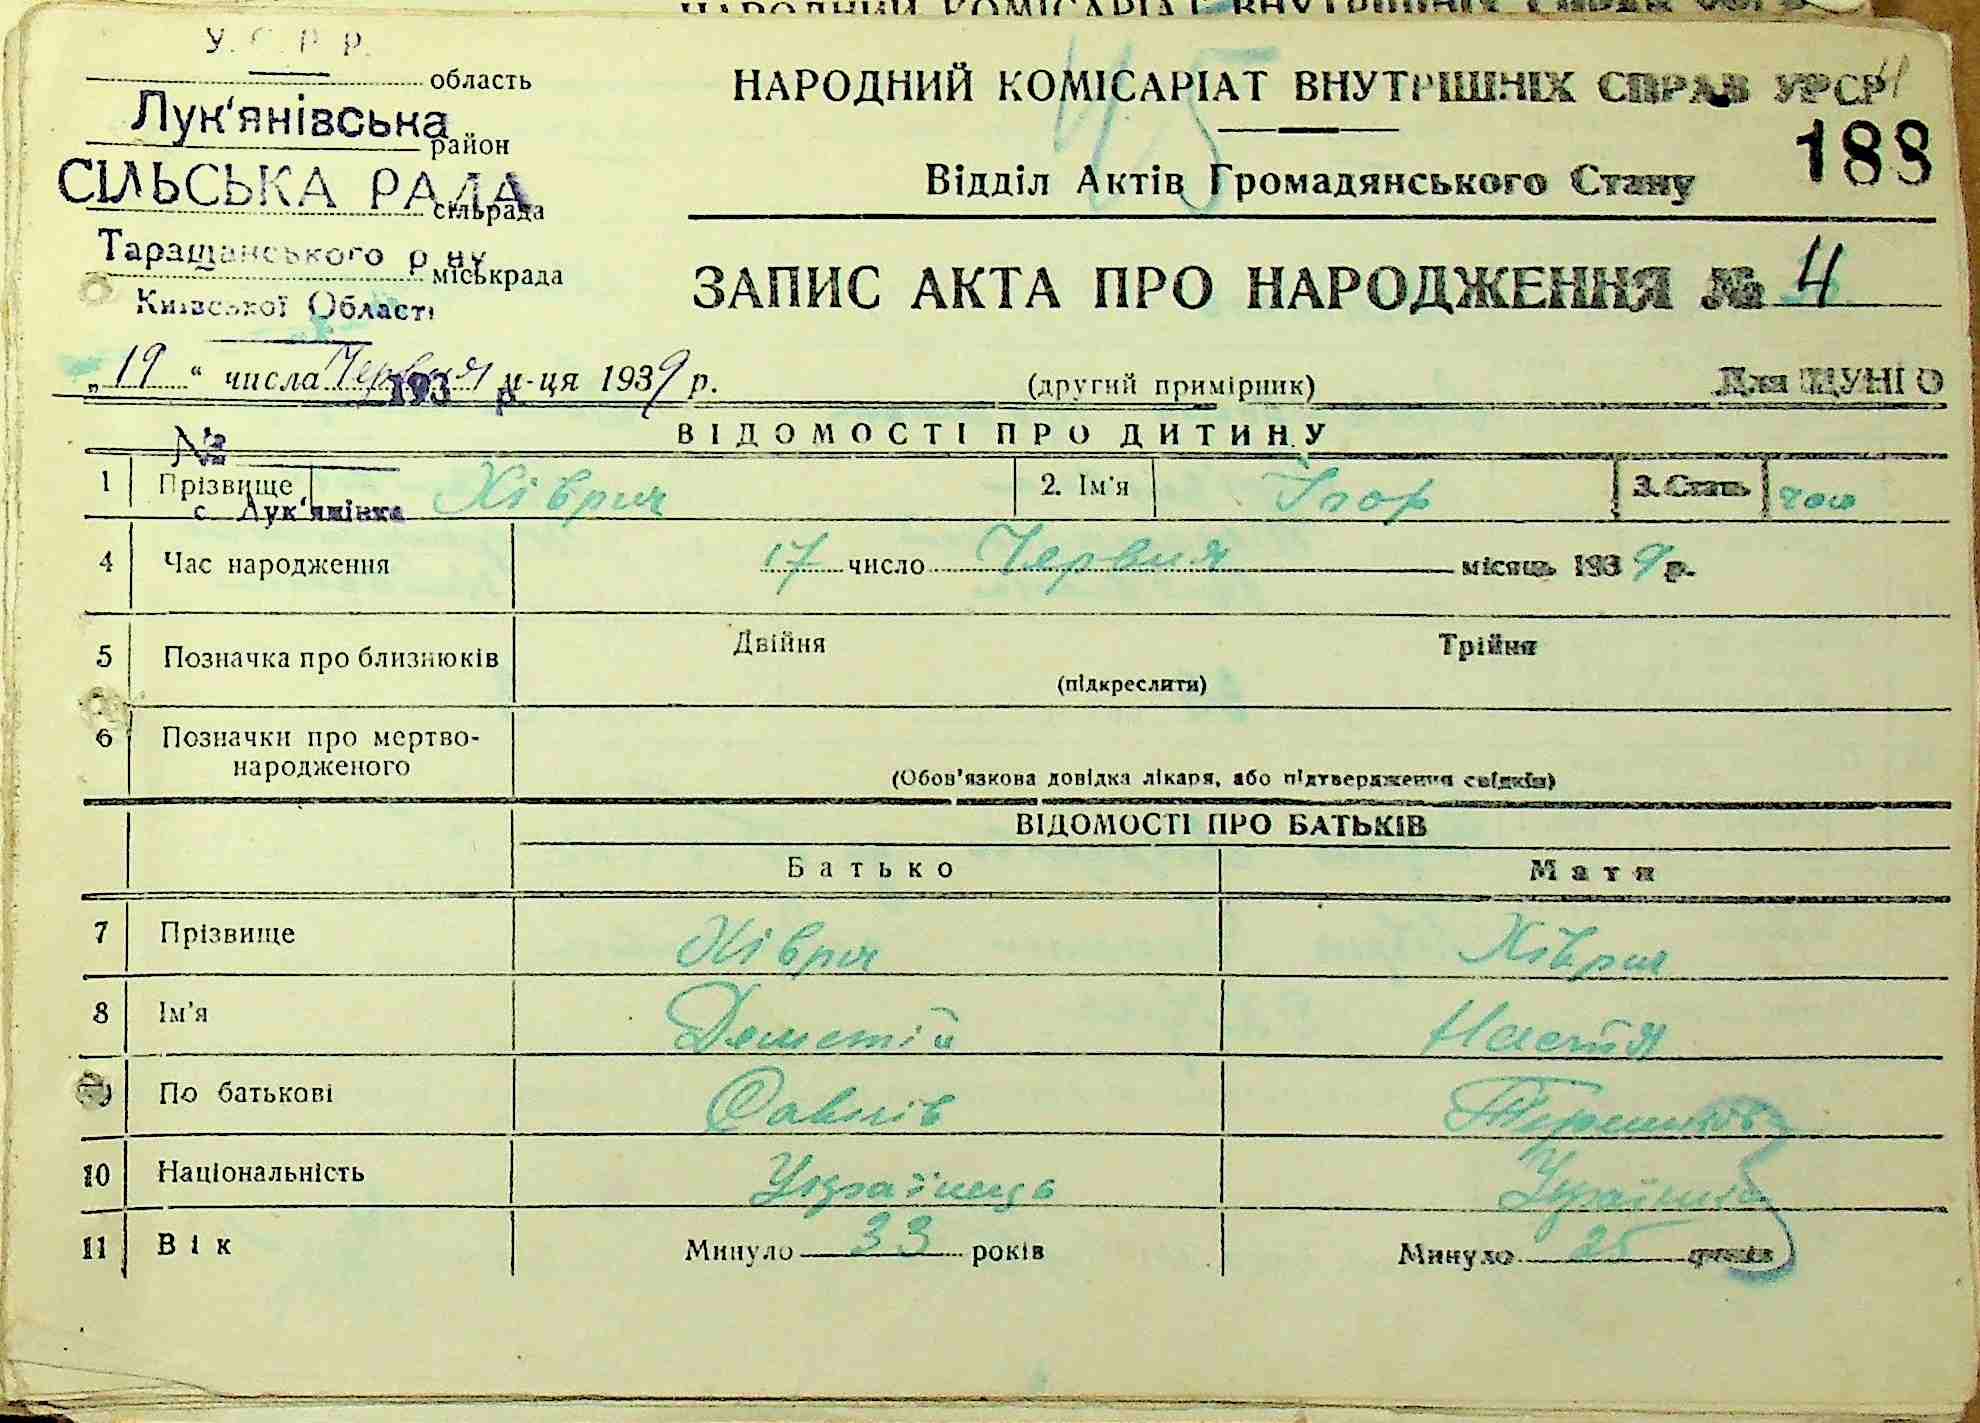 У. С. Р. Р.
область
Лук'янівська
район
СІЛЬСЬКА РАДА
сільрада
Таращанського р ну
міськрада
Київської Області
НАРОДНИЙ КОМІСАРІАТ ВНУТРІШНІХ СПРАВ УРСР
45
188
Відділ Актів Громадянського Стану
ЗАПИС АКТА ПРО НАРОДЖЕННЯ № 4
„19“ числа Червня м-ця 1939 р.
193 р
(другий примірник)
Для ЦУНГО
№
ВІДОМОСТІ ПРО ДИТИНУ
1 Прізвище Хіврич 2. Ім'я Ігор 3. Стать чол
с. Лук'янівка
4 Час народження 17 число Червня місяць 1939 р.
5 Позначка про близнюків Двійня Трійня
(підкреслити)
6 Позначки про мертво-
народженого
(Обов'язкова довідка лікаря, або підтвердження свідків)
ВІДОМОСТІ ПРО БАТЬКІВ
Батько Мати
7 Прізвище Хіврич Хіврич
8 Ім'я Деметій Настя
9 По батькові Савків
10 Національність Українець Українка
11 Вік Минуло 33 років Минуло 25 років